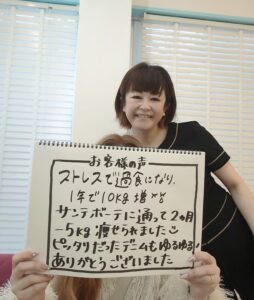 お客様の声
ストレスで過食になり、
1年で10kg増から
サンテボーテに通って2ヶ月
-5kg 痩せられました
ピッタリだったデニムもゆるゆる!
ありがとうございました